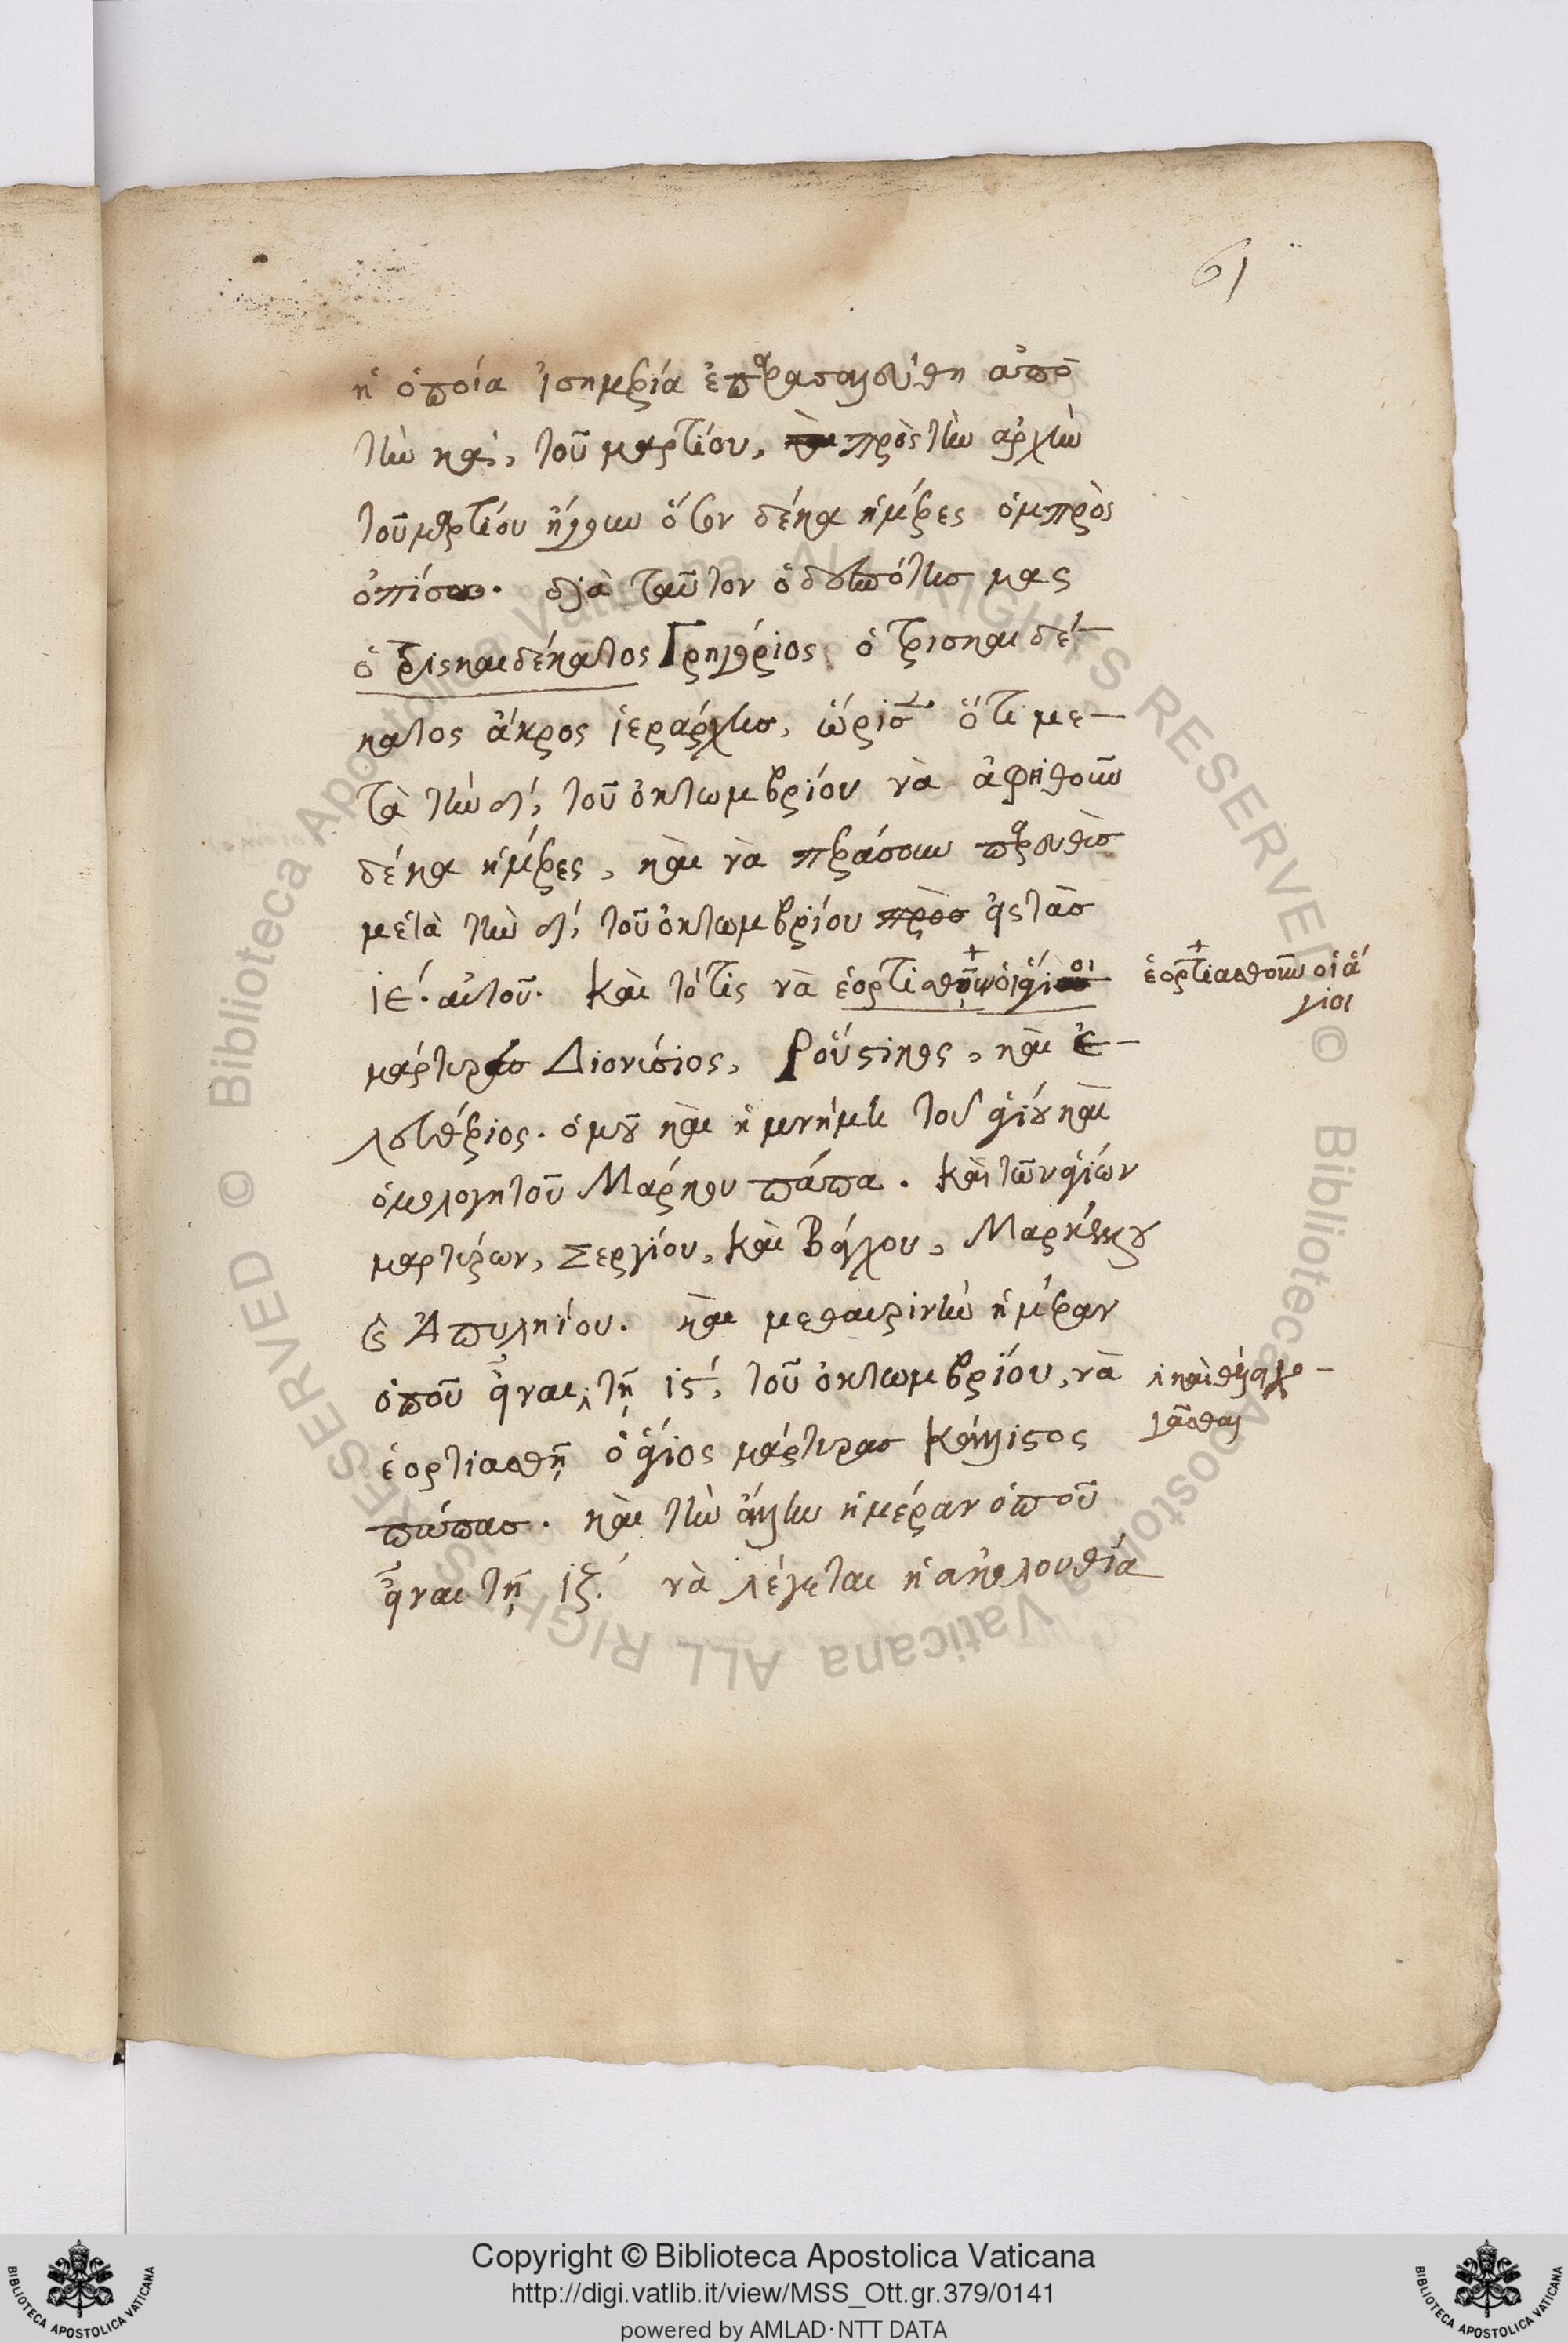 61
ἡ ὁποία ἰσημερία ἐπαρασαλεύθη ἀπὸ
τὴν κα΄, τοῦ μαρτίου, πρὸς τὴν ἀρχὴν
τοῦ μαρτίου ἤγουν ὅσον δέκα ἡμέρες ὀμπρὸς
ὀπίσω. διὰ ταῦτον ὁ δεσπότης μας
ὁ τρισκαιδέκατος Γρηγόριος ὁ τρισκαιδέ-
κατος ἄκρος ἱεράρχης, ὥρισε ὅτι με-
τὰ τὴν δ΄, τοῦ ὀκτωμβρίου νὰ ἀφηθοῦν
δέκα ἡμέρες, καὶ νὰ περάσουν παρευθὺς
μετὰ τὴν δ΄, τοῦ ὀκτωμβρίου πρὸς εἰς τὰς
ιε΄. αὐτοῦ. καὶ τότις νὰ ἑορτιασθοῦν οἱ ἅγιοι
ἑορτιασθοῦν οἱ ἅ
γιοι
μάρτυρες Διονύσιος, Ρούστικος, καὶ Ἐ-
λευθέριος. ὁμοῦ καὶ ἡ μνήμη τοῦ ἁγίου καὶ
ὁμολογητοῦ Μάρκου πάπα. καὶ τῶν ἁγίων
μαρτύρων, Σεργίου, καὶ Βάγχου, Μαρκέλλου
καὶ Ἀπουληίου. καὶ μεθαυρινὴν ἡμέραν
ὁποῦ εἶναι τῇ ιϛ΄, τοῦ ὀκτωμβρίου, νὰ
ἑορτιασθῇ ὁ ἅγιος μάρτυρας Κάλλιστος
πάπας. καὶ τὴν ἄλλην ἡμέραν ὁποῦ
εἶναι τῇ ιζ΄. νὰ λέγεται ἡ ἀκολουθία
Copyright © Biblioteca Apostolica Vaticana
http://digi.vatlib.it/view/MSS_Ott.gr.379/0141
powered by AMLAD·NTT DATA
BIBLIOTECA APOSTOLICA VATICANA
BIBLIOTECA APOSTOLICA VATICANA
© Biblioteca Apostolica Vaticana ALL RIGHTS RESERVED © Biblioteca Apostolica Vaticana ALL RIGHTS RESERVED